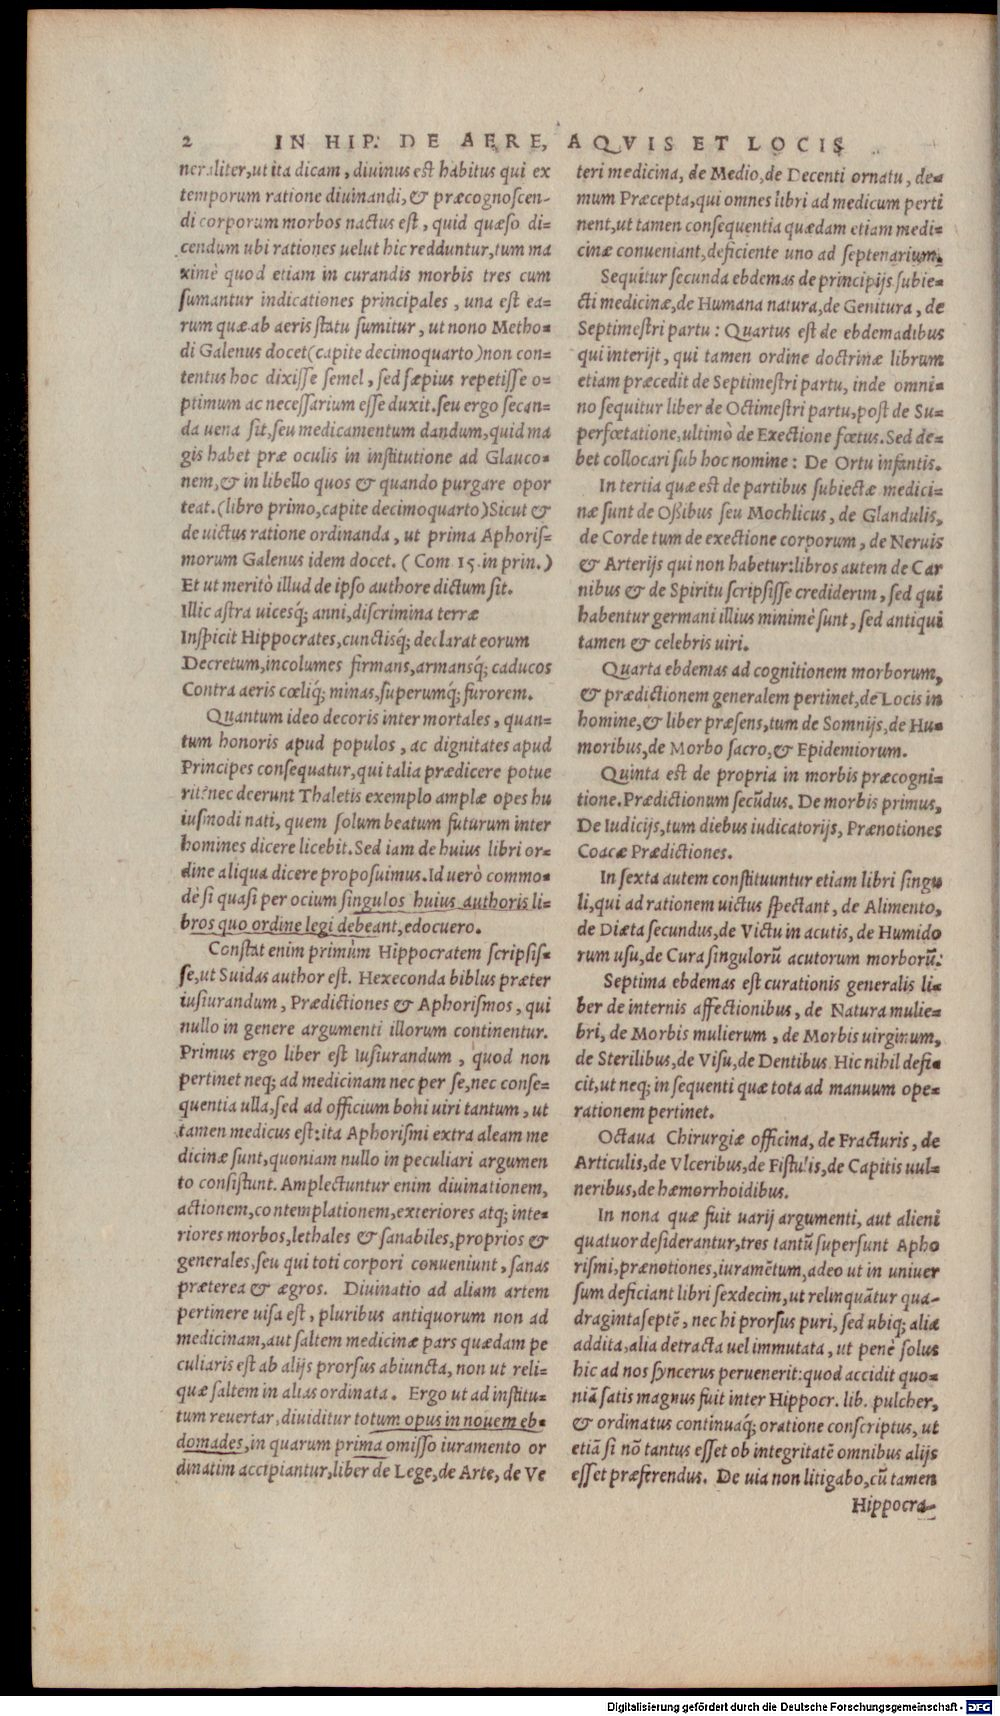 2 IN HIP. DE AERE, AQVIS ET LOCIS
neraliter, ut ita dicam, diuinus est habitus qui ex
temporum ratione diuinandi, & præcognoscen-
di corporum morbos nactus est, quid quæso di=
cendum ubi rationes uelut hic redduntur, tum ma
ximè quod etiam in curandis morbis tres cum
sumantur indicationes principales, una est ea=
rum quæ ab aeris statu sumitur, ut nono Metho=
di Galenus docet (capite decimoquarto) non con=
tentus hoc dixisse semel, sed sæpius repetisse o=
ptimum ac necessarium esse duxit. seu ergo secan=
da uena sit, seu medicamentum dandum, quid ma
gis habet præ oculis in institutione ad Glauco=
nem, & in libello quos & quando purgare opor
teat. (libro primo, capite decimoquarto) Sicut &
de uictus ratione ordinanda, ut prima Aphoris=
morum Galenus idem docet. (Com 15. in prin.)
Et ut meritò illud de ipso authore dictum sit.
Illic astra uicesq́; anni, discrimina terræ
Inspicit Hippocrates, cunctisq́; declarat eorum
Decretum, incolumes firmans, armansq́; caducos
Contra aeris cœliq́; minas, superumq́; furorem.
Quantum ideo decoris inter mortales, quan=
tum honoris apud populos, ac dignitates apud
Principes consequatur, qui talia prædicere potue
rit? nec deerunt Thaletis exemplo amplæ opes hu
iusmodi nati, quem solum beatum futurum inter
homines dicere licebit. Sed iam de huius libri or=
dine aliqua dicere proposuimus. Id uerò commo=
dè si quasi per ocium singulos huius authoris li=
bros quo ordine legi debeant, edocuero.
Constat enim primùm Hippocratem scripsis=
se, ut Suidas author est. Hexeconda biblus præter
iusiurandum, Prædictiones & Aphorismos, qui
nullo in genere argumenti illorum continentur.
Primus ergo liber est iusiurandum, quod non
pertinet neq; ad medicinam nec per se, nec conse=
quentia ulla, sed ad officium boni uiri tantum, ut
tamen medicus est: ita Aphorismi extra aleam me
dicinæ sunt, quoniam nullo in peculiari argumen
to consistunt. Amplectuntur enim diuinationem,
actionem, contemplationem, exteriores atq; inte=
riores morbos, lethales & sanabiles, proprios &
generales, seu qui toti corpori conueniunt, sanas
præterea & ægros. Diuinatio ad aliam artem
pertinere uisa est, pluribus antiquorum non ad
medicinam, aut saltem medicinæ pars quædam pe
culiaris est ab alijs prorsus abiuncta, non ut reli=
quæ saltem in alias ordinata. Ergo ut ad institu=
tum reuertar, diuiditur totum opus in nouem eb=
domades, in quarum prima omisso iuramento or
dinatim accipiantur, liber de Lege, de Arte, de Ve
teri medicina, de Medio, de Decenti ornatu, de=
mum Præcepta, qui omnes libri ad medicum perti
nent, ut tamen consequentia quædam etiam medi=
cinæ conueniant, deficiente uno ad septenarium.
Sequitur secunda ebdemas de principijs subie=
cti medicinæ, de Humana natura, de Genitura, de
Septimestri partu: Quartus est de ebdemadibus
qui interijt, qui tamen ordine doctrinæ librum
etiam præcedit de Septimestri partu, inde omni=
no sequitur liber de Octimestri partu, post de Su=
perfœtatione, ultimò de Exectione fœtus. Sed de=
bet collocari sub hoc nomine: De Ortu infantis.
In tertia quæ est de partibus subiectæ medici=
næ sunt de Oßibus seu Mochlicus, de Glandulis,
de Corde tum de exectione corporum, de Neruis
& Arterijs qui non habetur: libros autem de Car
nibus & de Spiritu scripsisse crediderim, sed qui
habentur germani illius minimè sunt, sed antiqui
tamen & celebris uiri.
Quarta ebdemas ad cognitionem morborum,
& prædictionem generalem pertinet, de Locis in
homine, & liber præsens, tum de Somnijs, de Hu=
moribus, de Morbo sacro, & Epidemiorum.
Quinta est de propria in morbis præcogni=
tione. Prædictionum secũdus. De morbis primus,
De Iudicijs, tum diebus iudicatorijs, Prænotiones
Coacæ Prædictiones.
In sexta autem constituuntur etiam libri singu
li, qui ad rationem uictus spectant, de Alimento,
de Diæta secundus, de Victu in acutis, de Humido
rum usu, de Cura singulorũ acutorum morborũ.
Septima ebdemas est curationis generalis li=
ber de internis affectionibus, de Natura mulie=
bri, de Morbis mulierum, de Morbis uirginum,
de Sterilibus, de Visu, de Dentibus. Hic nihil defi=
cit, ut neq; in sequenti quæ tota ad manuum ope=
rationem pertinet.
Octaua Chirurgiæ officina, de Fracturis, de
Articulis, de Vlceribus, de Fistulis, de Capitis uul=
neribus, de hæmorrhoidibus.
In nona quæ fuit uarij argumenti, aut alieni
quatuor desiderantur, tres tantũ supersunt Apho
rismi, prænotiones, iuramẽtum, adeo ut in uniuer
sum deficiant libri sexdecim, ut relinquãtur qua-
dragintaseptẽ, nec hi prorsus puri, sed ubiq; aliæ
addita, alia detracta uel immutata, ut penè solus
hic ad nos syncerus peruenerit: quod accidit quo=
niã satis magnus fuit inter Hippocr. lib. pulcher,
& ordinatus continuaq́; oratione conscriptus, ut
etiã si nõ tantus esset ob integritatẽ omnibus alijs
esset præferendus. De uia non litigabo, cũ tamen
Hippocra-
Digitalisierung gefördert durch die Deutsche Forschungsgemeinschaft - DFG